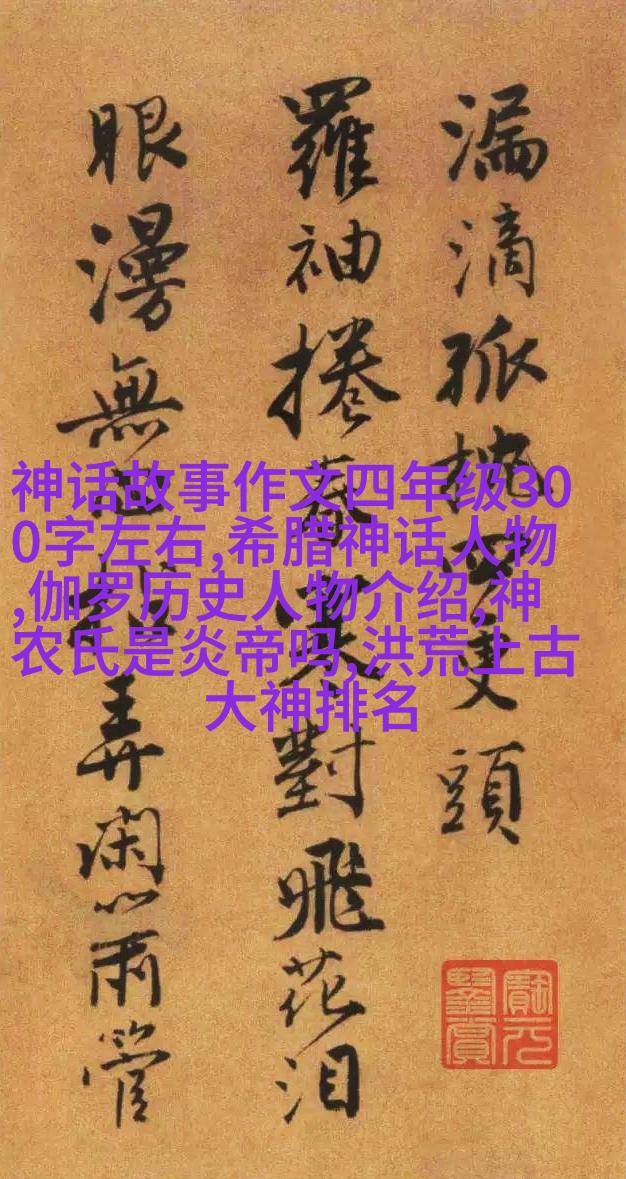 漏滴孤頭
羅袖捲對飛花泪
眼漫無弄闲心雨管
神话故事作文四年级30
0字左右,希腊神话人物
,伽罗历史人物介绍,神
农氏是炎帝吗,洪荒上古
大神排名